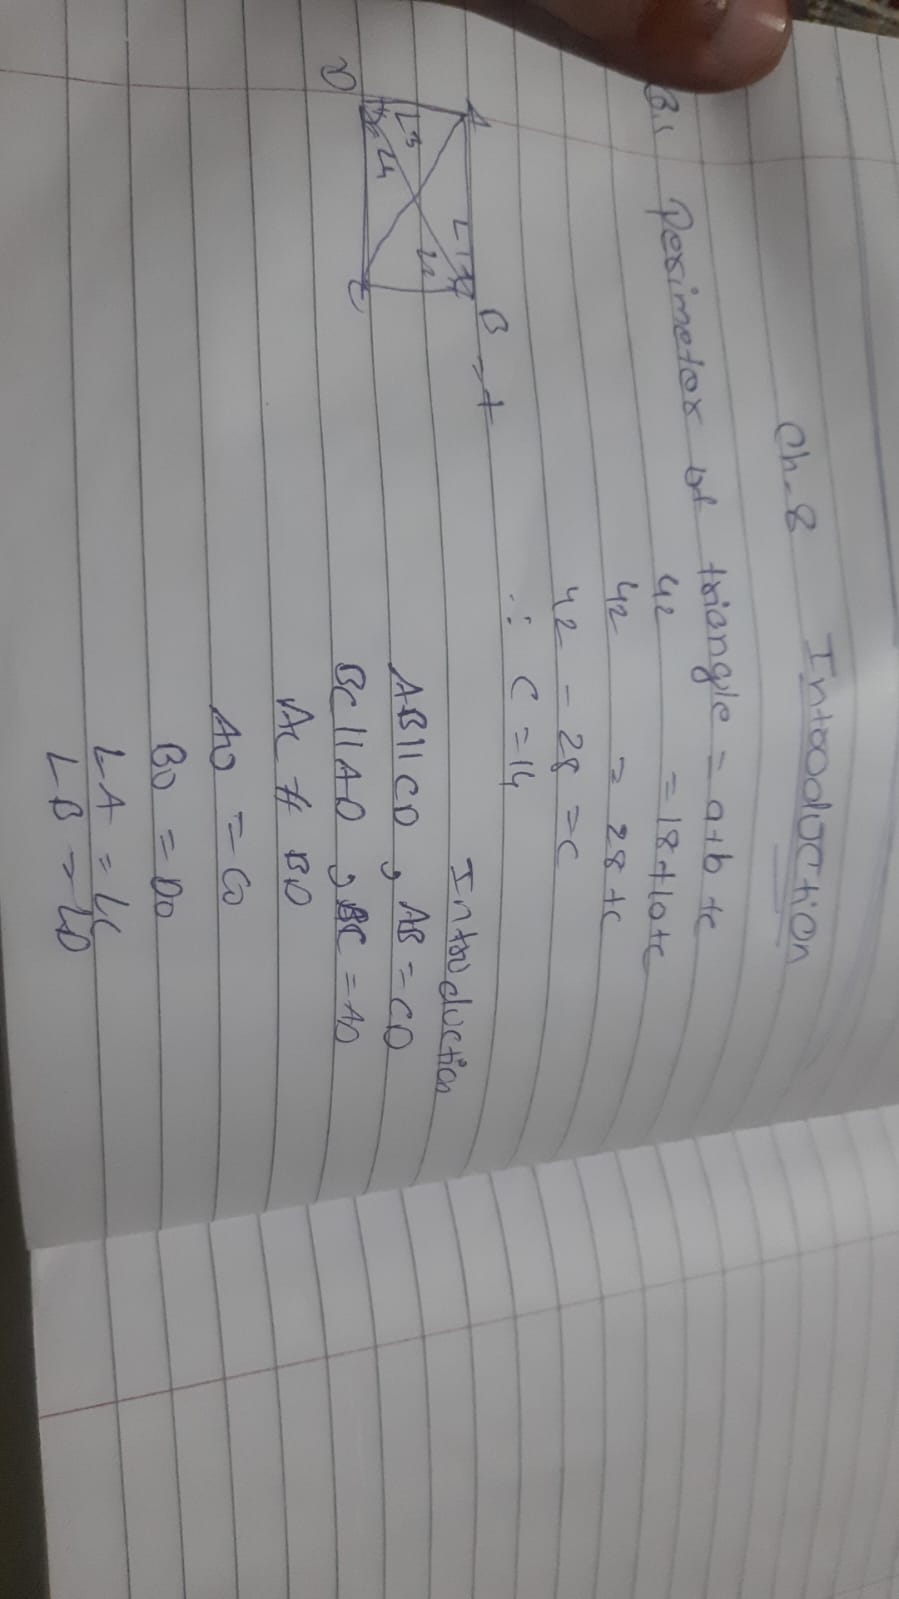 Ch-8 Introduction
Q.1 Perimeter of triangle = a+b+c
42 = 18+10+c
42 = 28+c
42 - 28 = c
∴ C = 14
A B
∠1
∠2
∠3
∠4
D C
Introduction
AB || CD , AB = CD
BC || AD , BC = AD
AC ≠ BD
AO = CO
BO = DO
∠A = ∠C
∠B = ∠D